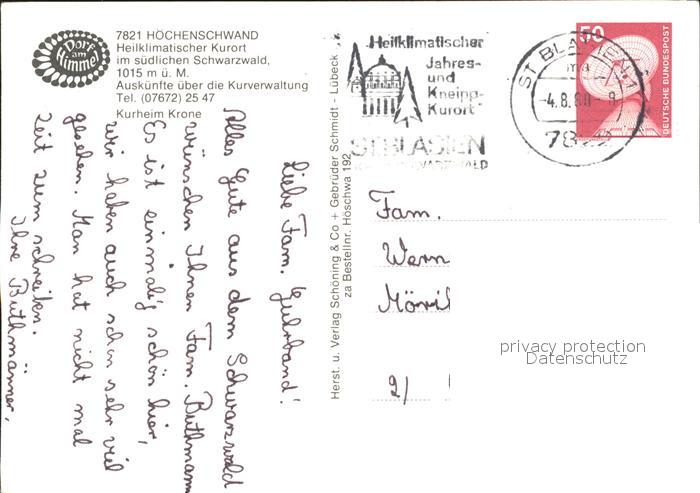 Dorf am Himmel
7821 HÖCHENSCHWAND
Heilklimatischer Kurort
im südlichen Schwarzwald,
1015 m ü. M.
Auskünfte über die Kurverwaltung
Tel. (07672) 25 47
Kurheim Krone
Liebe Fam. Gehrband!
Alles Gute aus dem Schwarzwald
wünschen Ihnen Fam. Buthmann
Es ist einmalig schön hier,
wir haben auch schon sehr viel
gesehen. Man hat nicht mal
Zeit zum schreiben.
Ihre Buthmänner,
Herst. u. Verlag Schöning & Co + Gebrüder Schmidt - Lübeck
zu Bestellnr. Höschwa 192
Heilklimatischer
Jahres-
und
Kneipp-
Kurort
ST. BLASIEN
ST BLASIEN 1
-4.8.80-8
7822
50
DEUTSCHE BUNDESPOST
Fam.
Wern
2/
privacy protection
Datenschutz